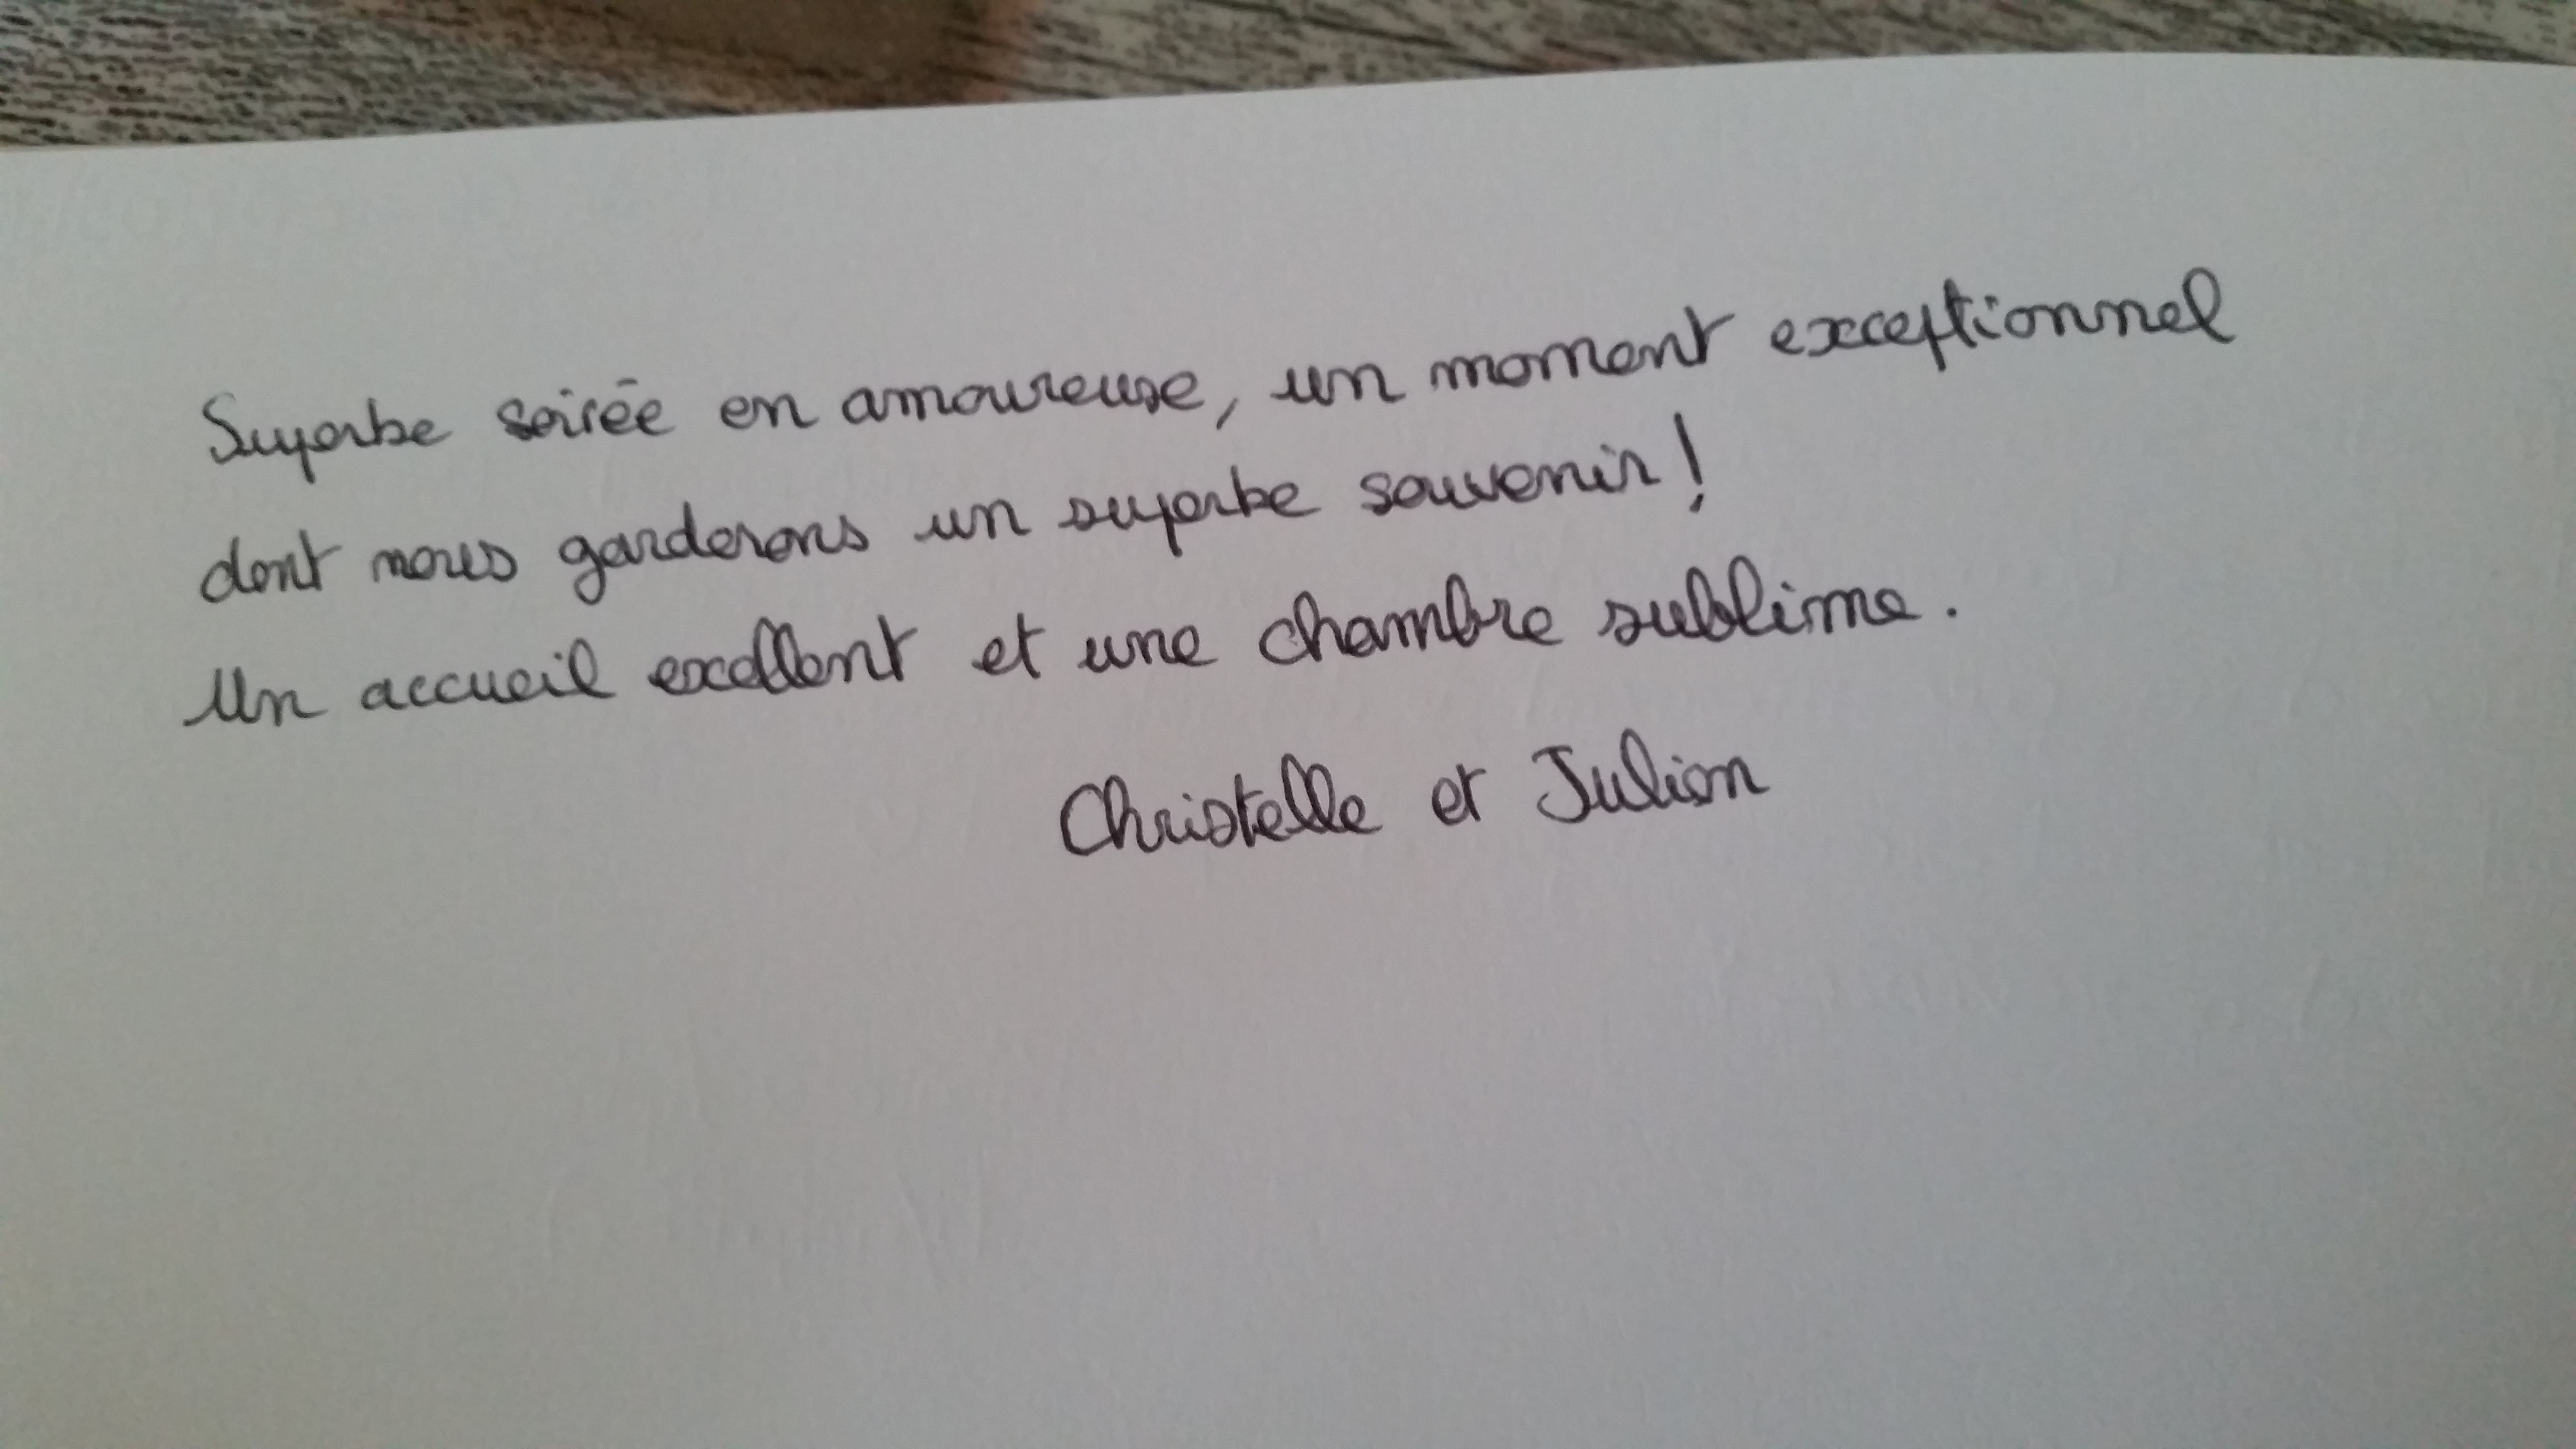 Superbe soirée en amoureuse, un moment exceptionnel
dont nous garderons un superbe souvenir !
Un accueil exellent et une chambre sublime.
Christelle et Julien